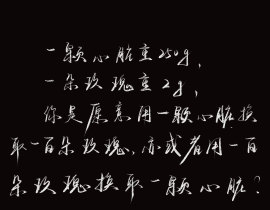 一颗心脏重250g,
一朵玫瑰重2g,
你是愿意用一颗心脏换
取一百朵玫瑰,亦或者用一百
朵玫瑰换取一颗心脏?